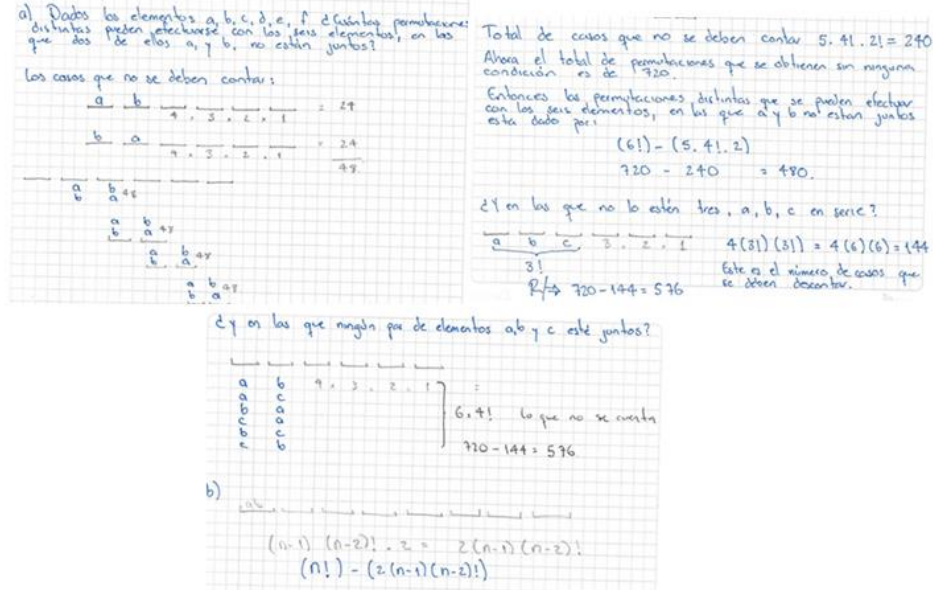 a) Dados los elementos a, b, c, d, e, f. ¿Cuántas permutaciones
distintas pueden efectuarse con los seis elementos, en las
que dos de ellos a, y b, no están juntos?
Los casos que no se deben contar:
a b 4 . 3 . 2 . 1 = 24
b a 4 . 3 . 2 . 1 = 24
48
a b
b a 48
a b
b a 48
a b
b a 48
a b
b a 48
Total de casos que no se deben contar 5. 4!. 2! = 240
Ahora el total de permutaciones que se obtienen sin ninguna
condición es de 720.
Entonces las permutaciones distintas que se pueden efectuar
con los seis elementos, en las que a y b no estan juntos
esta dado por:
(6!) - (5. 4!. 2)
720 - 240 = 480.
¿Y en las que no lo estén tres, a, b, c en serie?
a b c 3 . 2 . 1 4(3!)(3!) = 4(6)(6) = 144
3! Este es el número de casos que
se deben descontar.
R/→ 720 - 144 = 576
¿y en las que ningún par de elementos a,b y c esté juntos?
a b 4 . 3 . 2 . 1 =
a c
b a 6. 4! lo que no se cuenta
c a
b c 720 - 144 = 576
c b
b)
ab
(n-1) (n-2)! . 2 = 2(n-1)(n-2)!
(n!) - (2(n-1)(n-2)!)